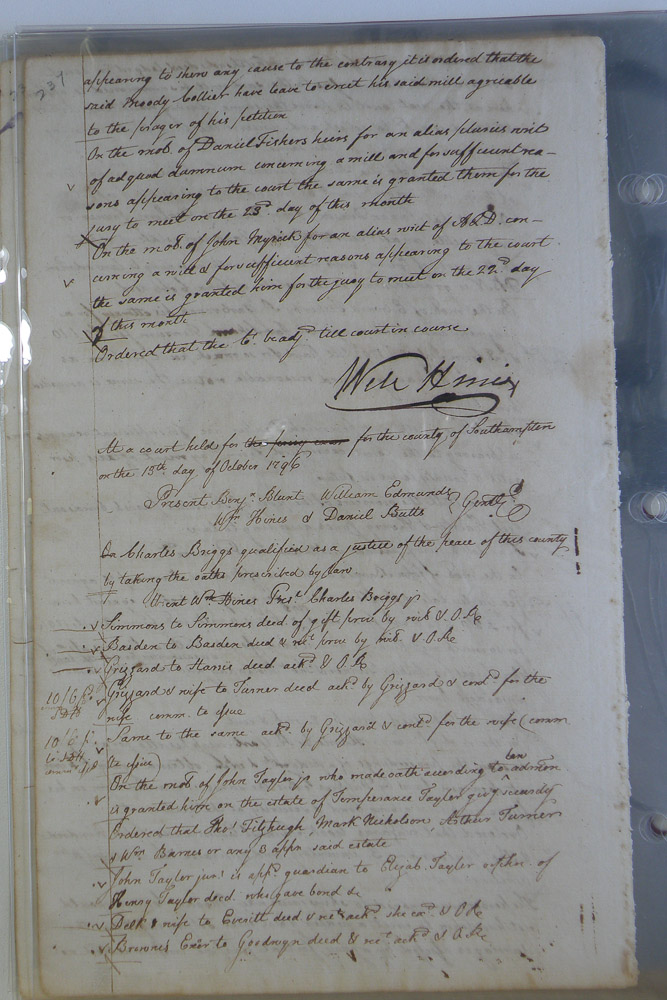 237
appearing to shew any cause to the contrary it is ordered that the
said Moody Collier have leave to erect his said mill agreeable
to the prayer of his petition
On the moō. of Daniel Fishers heirs for an alias pluries writ
of ad quod damnum concerning a mill and for sufficient rea-
sons appearing to the court the same is granted them for the
jury to meet on the 23d. day of this month
On the moō. of John Myrick for an alias writ of A Q D. con-
cerning a mill & for sufficient reasons appearing to the court
the same is granted him for the jury to meet on the 22d. day
of this month
Ordered that the Ct. be adjd. till court in course
Will Hines
At a court held for for the county of Southampton
on the 13th day of October 1796
Present Benjn. Blunt William Edmunds
Wm. Hines & Daniel Butts } Gentle
Charles Briggs qualified as a justice of the peace of this county
by taking the oaths prescribed by law
Went Wm Hines Prest. Charles Briggs jr
Simmons to Simmons deed of gift prov by wits & O.Re
Basden to Basden deed & ret prov by wits. & O.Re
Grizzard to Harris deed ackd. & O.Re
10/6 Grizzard & wife to Turner deed ackd. by Grizzard & contd. for the
wife comm. to issue
10/6 Same to the same ackd. by Grizzard & contd. for the wife (comm
to issue)
On the moō. of John Taylor jr who made oath according to law admon
is granted him on the estate of Temperance Taylor givg security
Ordered that Thos. Fitzhugh, Mark Nicholson Arthur Turner
& Wm Barnes or any 3 appr. said estate
John Taylor junr. is appd. guardian to Elijah Taylor orphn. of
Henry Taylor decd. who gave bond &c
& wife to Everitt deed & ret ackd. she exd. & O.Re
Brownes Exor to Goodwyn deed & ret. ackd. & O.Re